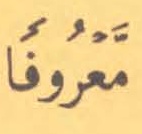 مَّعْرُوفًا